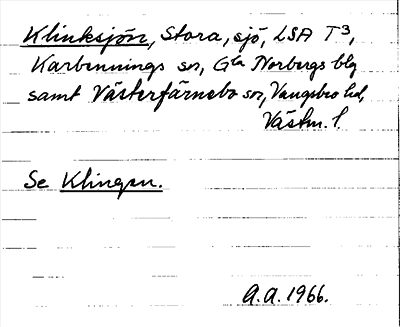 Klinksjön, Stora, sjö, LSA T³,
Karbennings sn, Gla Norbergs blg
samt Västerfärnebo sn, Vangsbro hd,
Västm. l.
Se Klingen.
A.A. 1966.